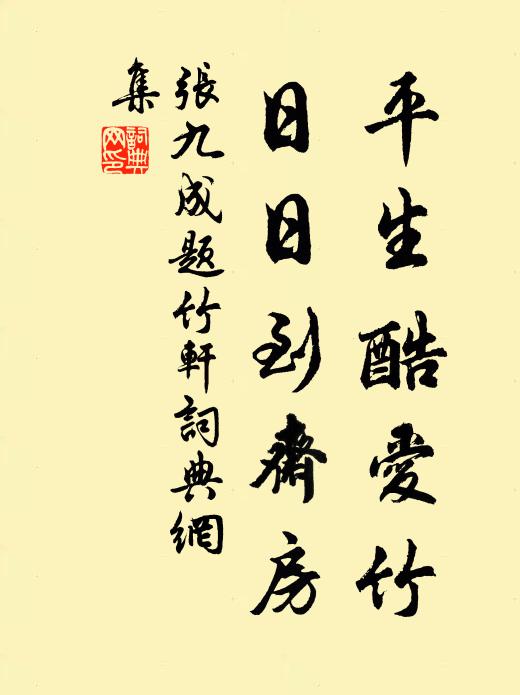 平生酷愛竹
日日到齋房
張九成題竹軒詞典網
集
詞典網印